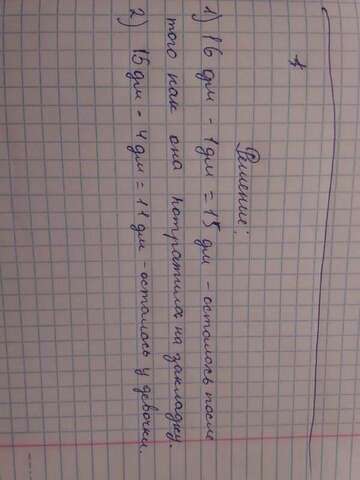 Решение:
1) 16 дм - 1 дм = 15 дм - осталось после
того как она потратила на закладку.
2) 15 дм - 4 дм = 11 дм - осталось у девочки.